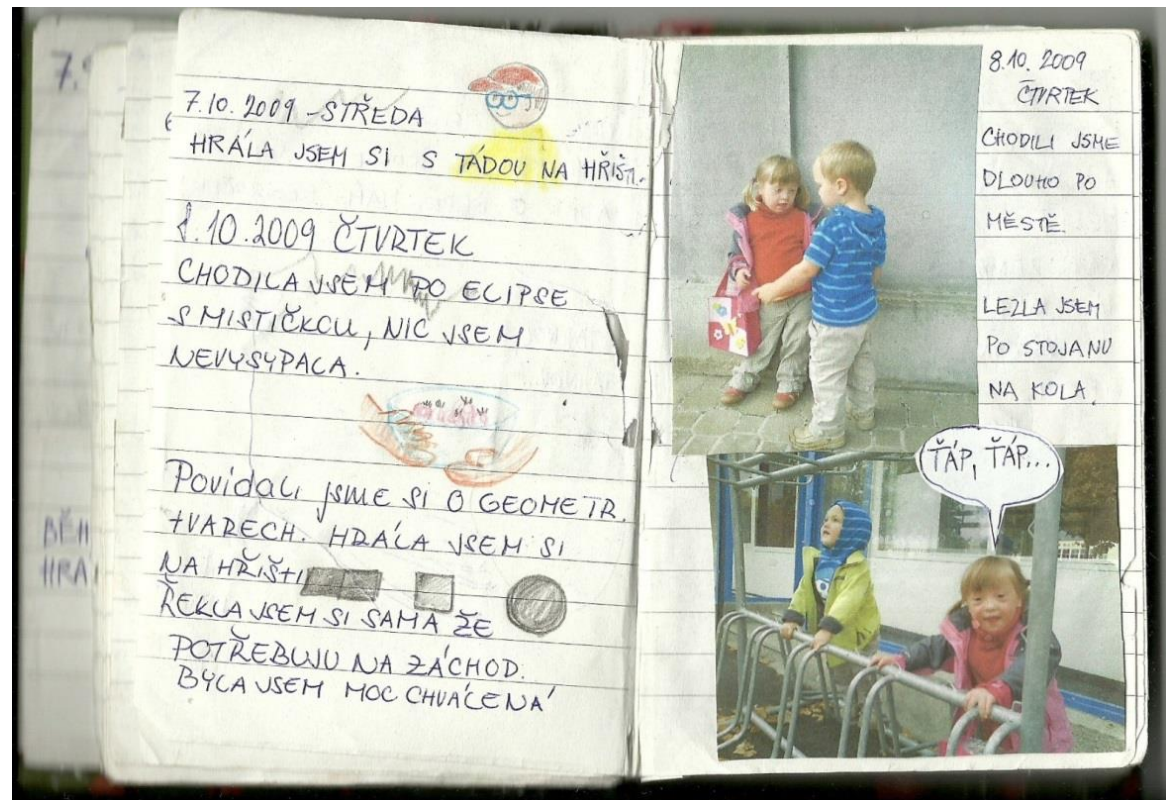 7.
BĚH
HRA
7.10.2009 - STŘEDA
HRÁLA JSEM SI S TÁDOU NA HŘIŠTI.
8.10.2009 ČTVRTEK
CHODILA JSEM PO ELIPSE
S MISTIČKOU, NIC JSEM
NEVYSYPALA.
Povídali jsme si O GEOMETR.
tVARECH. HRÁLA JSEM SI
NA HŘIŠTI
ŘEKLA JSEM SI SAMA ŽE
POTŘEBUJU NA ZÁCHOD.
BYLA JSEM MOC CHVÁLENÁ
8.10.2009
ČTVRTEK
CHODILI JSME
DLOUHO PO
MĚSTĚ.
LEZLA JSEM
PO STOJANU
NA KOLA.
ŤÁP, ŤÁP...